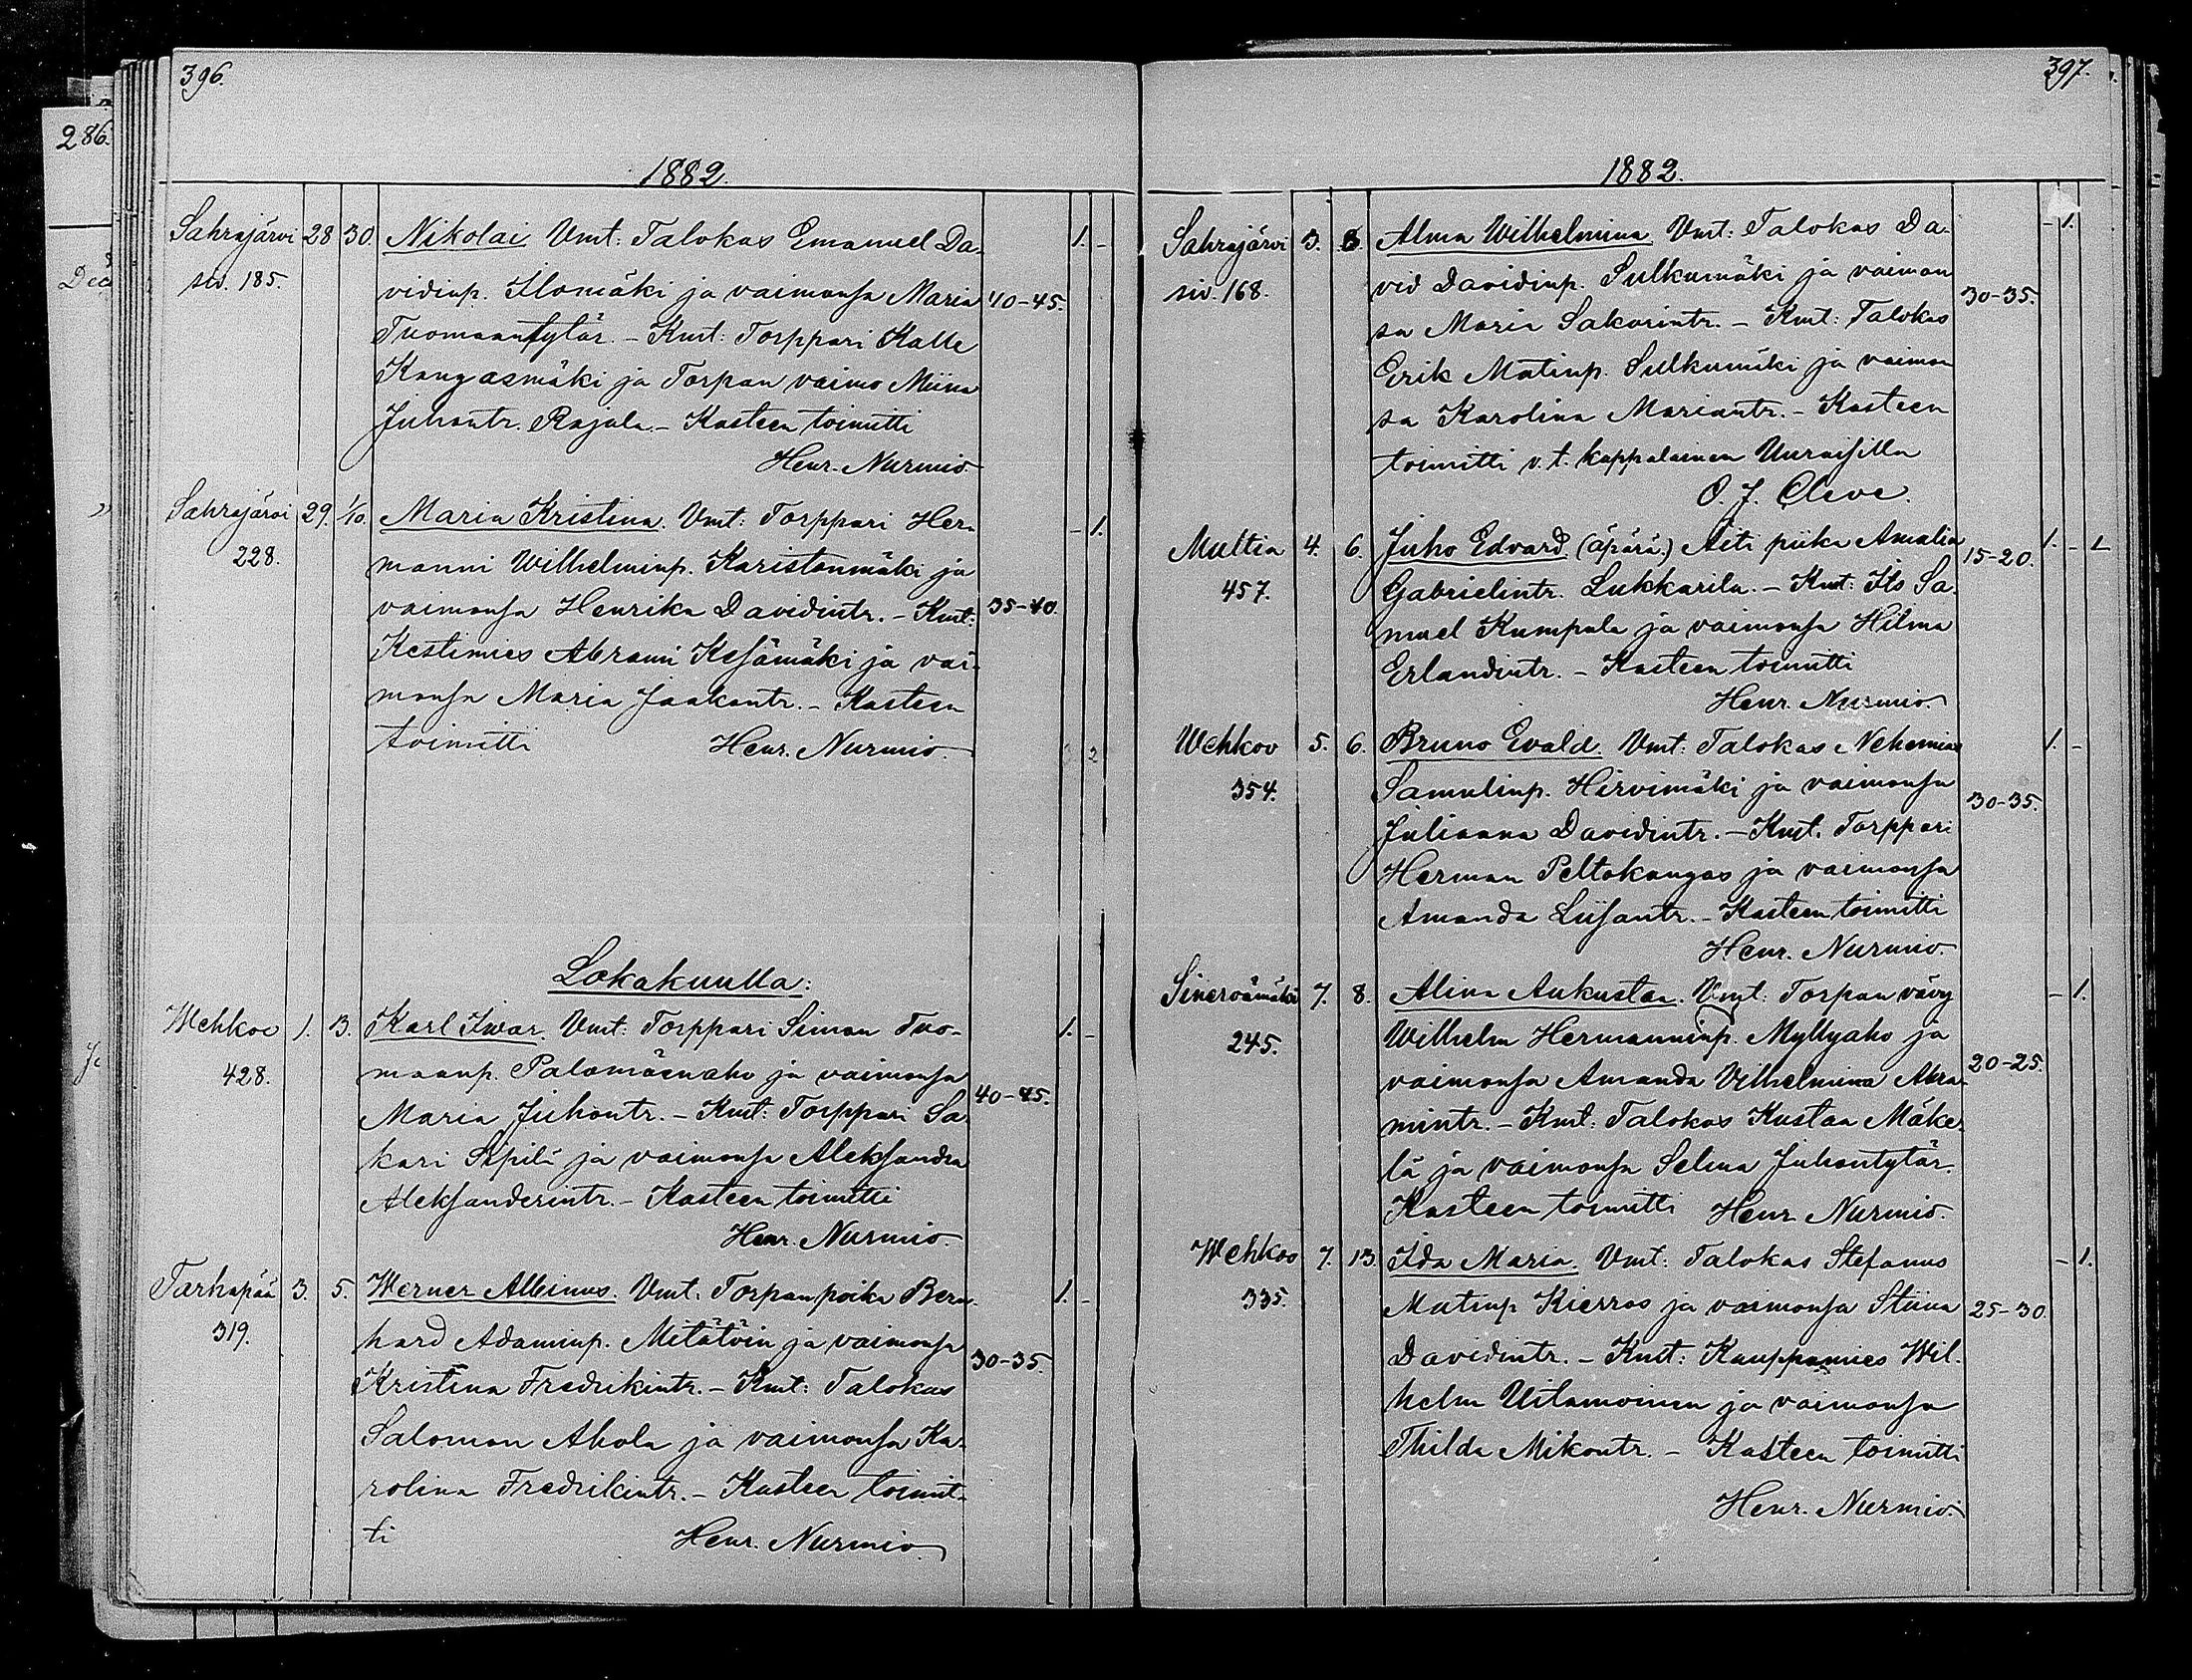 396.
286.
1882.
Sahrajärvi 28 30. Nikolai Vmt: Talokas Emanuel Da- 1. -
siv. 185. vidinp. Ilomäki ja vaimonsa Maria 40-45.
Tuomaantytär. - Kmt: Torppari Kalle
Kangasmäki ja Torpan vaimo Miina
Juhontr. Rajala. - Kasteen toimitti
Henr. Nurmio.
Sahrajärvi 29. 1/10. Maria Kristina. Vmt: Torppari Her- - 1.
228. manni Wilhelminp. Karistanmäki ja
vaimonsa Henrika Davidintr. - Kmt: 35-40.
Kestimies Abrami Kesämäki ja vai-
monsa Maria Jaakontr. - Kasteen
toimitti Henr. Nurmio. 2
Lokakuulla:
Wehkoo 1. 13. Karl Iwar. Vmt: Torppari Simon Tuo- 1. -
428. maanp. Palomäenaho ja vaimonsa
Maria Juhontr. - Kmt: Torppari Sa- 40-45.
kari Sipilä ja vaimonsa Aleksandra
Aleksanderintr. - Kasteen toimitti
Henr. Nurmio.
Tarhapää 3. 5. Werner Albinus. Vmt. Torpanpoika Bern- 1. -
319. hard Adaminp. Mitätöin ja vaimonsa
Kristina Fredrikintr. - Kmt: Talokas 30-35.
Salomon Ahola ja vaimonsa Ka-
rolina Fredrikintr. - Kasteen toimit-
ti Henr. Nurmio
397.
1882.
Sahrajärvi 3. 8. Alma Wilhelmina. Vmt: Talokas Da- - 1.
siv. 168. vid Davidinp. Sulkumäki ja vaimon 30-35.
sa Maria Sakarintr. - Kmt: Talokas
Erik Matinp. Sulkumäki ja vaimon
sa Karolina Mariantr. - Kasteen
toimitti v. t. kappalainen Uuraisilla
O. J. Cleve.
Multia 4. 6. Juho Edvard. (äpärä.) Äiti piika Amalia 15-20. 1. - 1
457. Gabrielintr. Lukkarila. - Kmt: Its Sa-
muel Kumpula ja vaimonsa Hilma
Erlandintr. - Kasteen toimitti
Henr. Nurmio.
Wehkoo 5. 6. Bruno Evald. Vmt: Talokas Nehemias 1. -
354. Samulinp. Hirvimäki ja vaimonsa 30-35.
Julianna Davidintr. - Kmt. Torppari
Herman Peltokangas ja vaimonsa
Amanda Liisantr. - Kasteen toimitti
Henr. Nurmio.
Sinervämäki 7. 8. Alina Aukustaa. Vmt: Torpan vävy - 1.
245. Wilhelm Hermanninp. Myllyaho ja
vaimonsa Amanda Vilhelmina Abra- 20-25.
mintr. - Kmt: Talokas Kustaa Mäke-
lä ja vaimonsa Selma Juhontytär.
Kasteen toimitti Henr. Nurmio.
Wehkoo 7. 13. Ida Maria. Vmt: Talokas Stefanus - 1.
335. Matinp Kierros ja vaimonsa Stiina 25-30.
Davidintr. - Kmt: Kauppamies Wil-
helm Uitamoinen ja vaimonsa
Thilda Mikontr. - Kasteen toimitti
Henr. Nurmio.